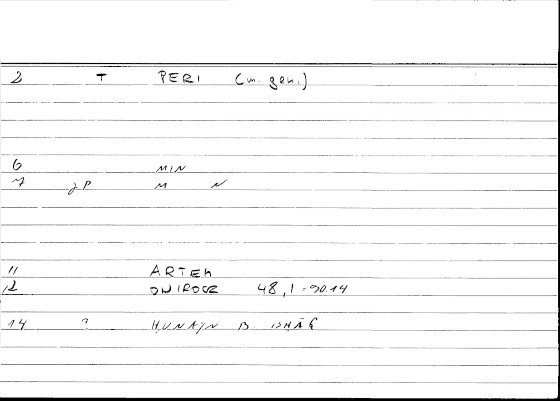 2 T PERI (m. gen.)
6 MIN
7 gP M N
11 ARTEM
12 ONIROCR 48,1-90.14
14 ? ḤUNAYN B. ISḤĀQ